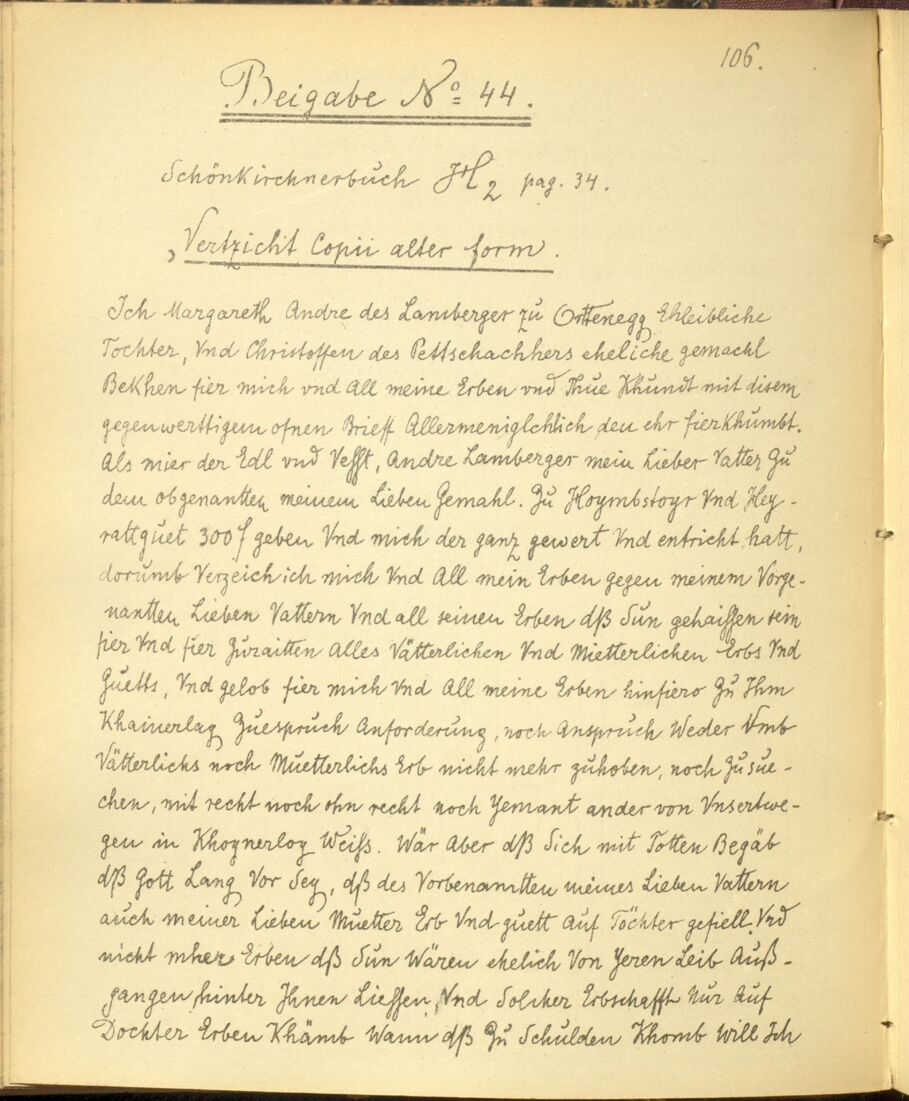 106.
Beigabe No 44.
Schönkirchnerbuch H2 pag. 34.
„Vertzicht Copii alter form.
Ich Margareth Andre des Lamberger zu Orttenegg Ehleibliche
Tochter, Vnd Christoffen des Pettschachhers eheliche gemachl
Bekhen fier mich vnd All meine Erben vnd Thue Khundt mit disem
gegenwerttigem ofnen Brieff Allermeniglchlich den ehr fierkhumbt.
Als mier der Edl vnd Vefft, Andre Lamberger mein Lieber Vatter Zu
dem obgenantten meinem Lieben Gemahl. Zu Hoymbstoyr Vnd Hey-
rattguet 300 f geben Vnd mich der ganz gewert Vnd entricht hatt,
dorumb Verzeich ich mich Vnd All mein Erben gegen meinem Vorge-
nantten Lieben Vattern Vnd all seinen Erben dß Sun gehaissen sein
fier Vnd fier Zuraitten Alles Vätterlichen Vnd Mietterlichen Erbs Vnd
Guetts, Vnd gelob fier mich Vnd All meine Erben hinfiero Zu Ihm
Khainerlag Zuespruch Anforderung, noch Anspruch Weder Vmb
Vätterlichs noch Muetterlichs Erb nicht mehr zuhoben, noch Zusue-
chen, mit recht noch ohn recht noch Yemant ander von Vnsertwe-
gen in Khoynerloy Weiss. Wär Aber dß Sich mit Totten Begäb
dß Gott Lang Vor Sey, dß des Vorbenamtten meines Lieben Vattern
auch meiner Lieben Muetter Erb Vnd guett Auf Töchter gefiell Vnd
nicht mher Erben dß Sun Wären ehelich Von Yeren Leib Auß-
gangen hinter Ihnen Liessen Vnd Solcher Erbschafft Nur Auf
Dochter Erben Khämb Wann dß Zu Schulden Khomb Will Ich